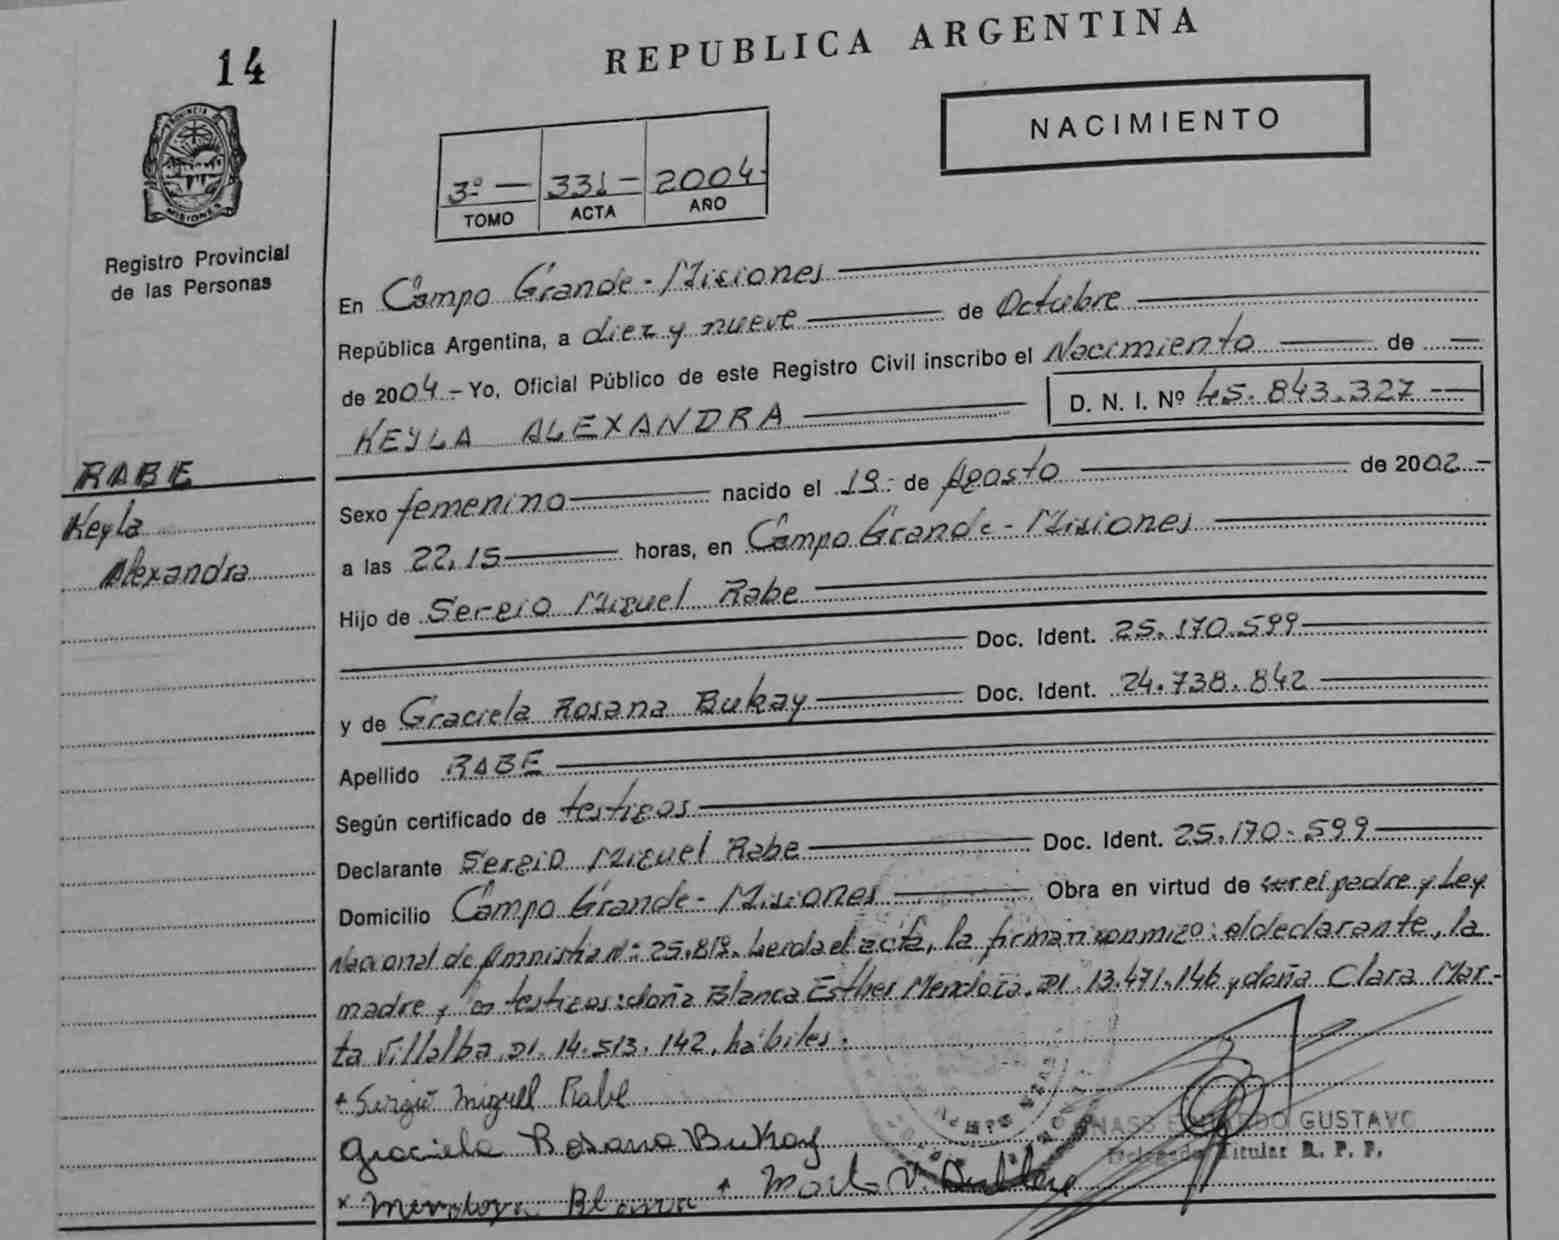 14
REPUBLICA ARGENTINA
NACIMIENTO
PROVINCIA DE
MISIONES
Registro Provincial
de las Personas
3º — 331 - 2004-
TOMO ACTA AÑO
En Campo Grande - Misiones
República Argentina, a diez y nueve de Octubre
de 2004 - Yo, Oficial Público de este Registro Civil inscribo el Nacimiento de —
KEYLA ALEXANDRA D. N. I. Nº 45.843.327
RABE
Keyla
Alexandra
Sexo femenino nacido el 19- de Agosto de 2002 -
a las 22,15 horas, en Campo Grande - Misiones
Hijo de Sergio Miguel Rabe
Doc. Ident. 25.170.599
y de Graciela Rosana Bukay Doc. Ident. 24.738.842
Apellido RABE
Según certificado de testigos
Declarante Sergio Miguel Rabe Doc. Ident. 25.170.599
Domicilio Campo Grande - Misiones Obra en virtud de ser el padre y Ley
Nacional de Amnistia Nº: 25.819. Leida el acta, la firman conmigo: el declarante, la
madre y los testigos: doña Blanca Esther Mendoza. DI. 13.471.146 y doña Clara Mar-
ta Villalba DI. 14.513.142, hábiles.
+ Sergio Miguel Rabe
Graciela Rosana Bukay
GUSTAVO
Delegado Titular R. P. P.
x Mendoza Blanca + Marta V.